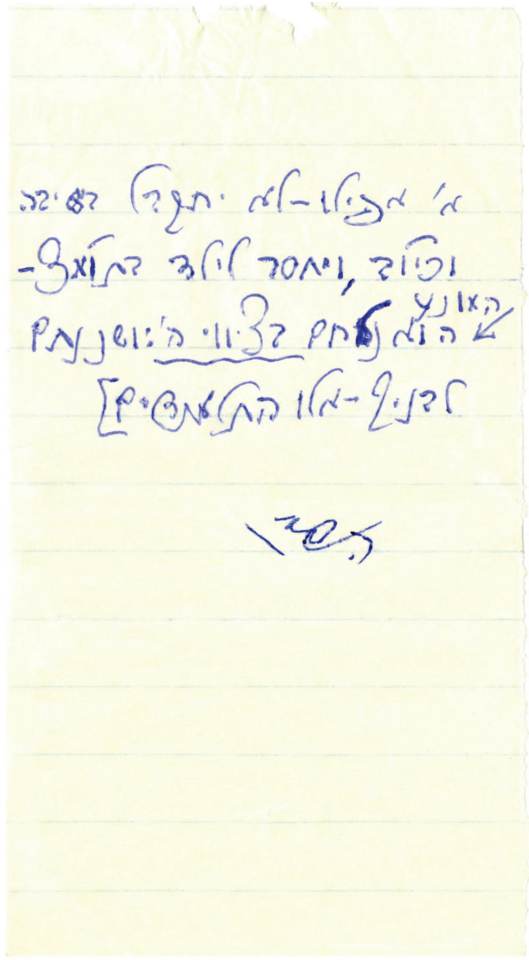 א' אפילו - לא יתקבל בישיבה
וכיו"ב, ויחסר לילד בתומ"צ -
המונע
הוא נלחם בציווי ה': ושננתם
לבניך - אלו התלמידים]